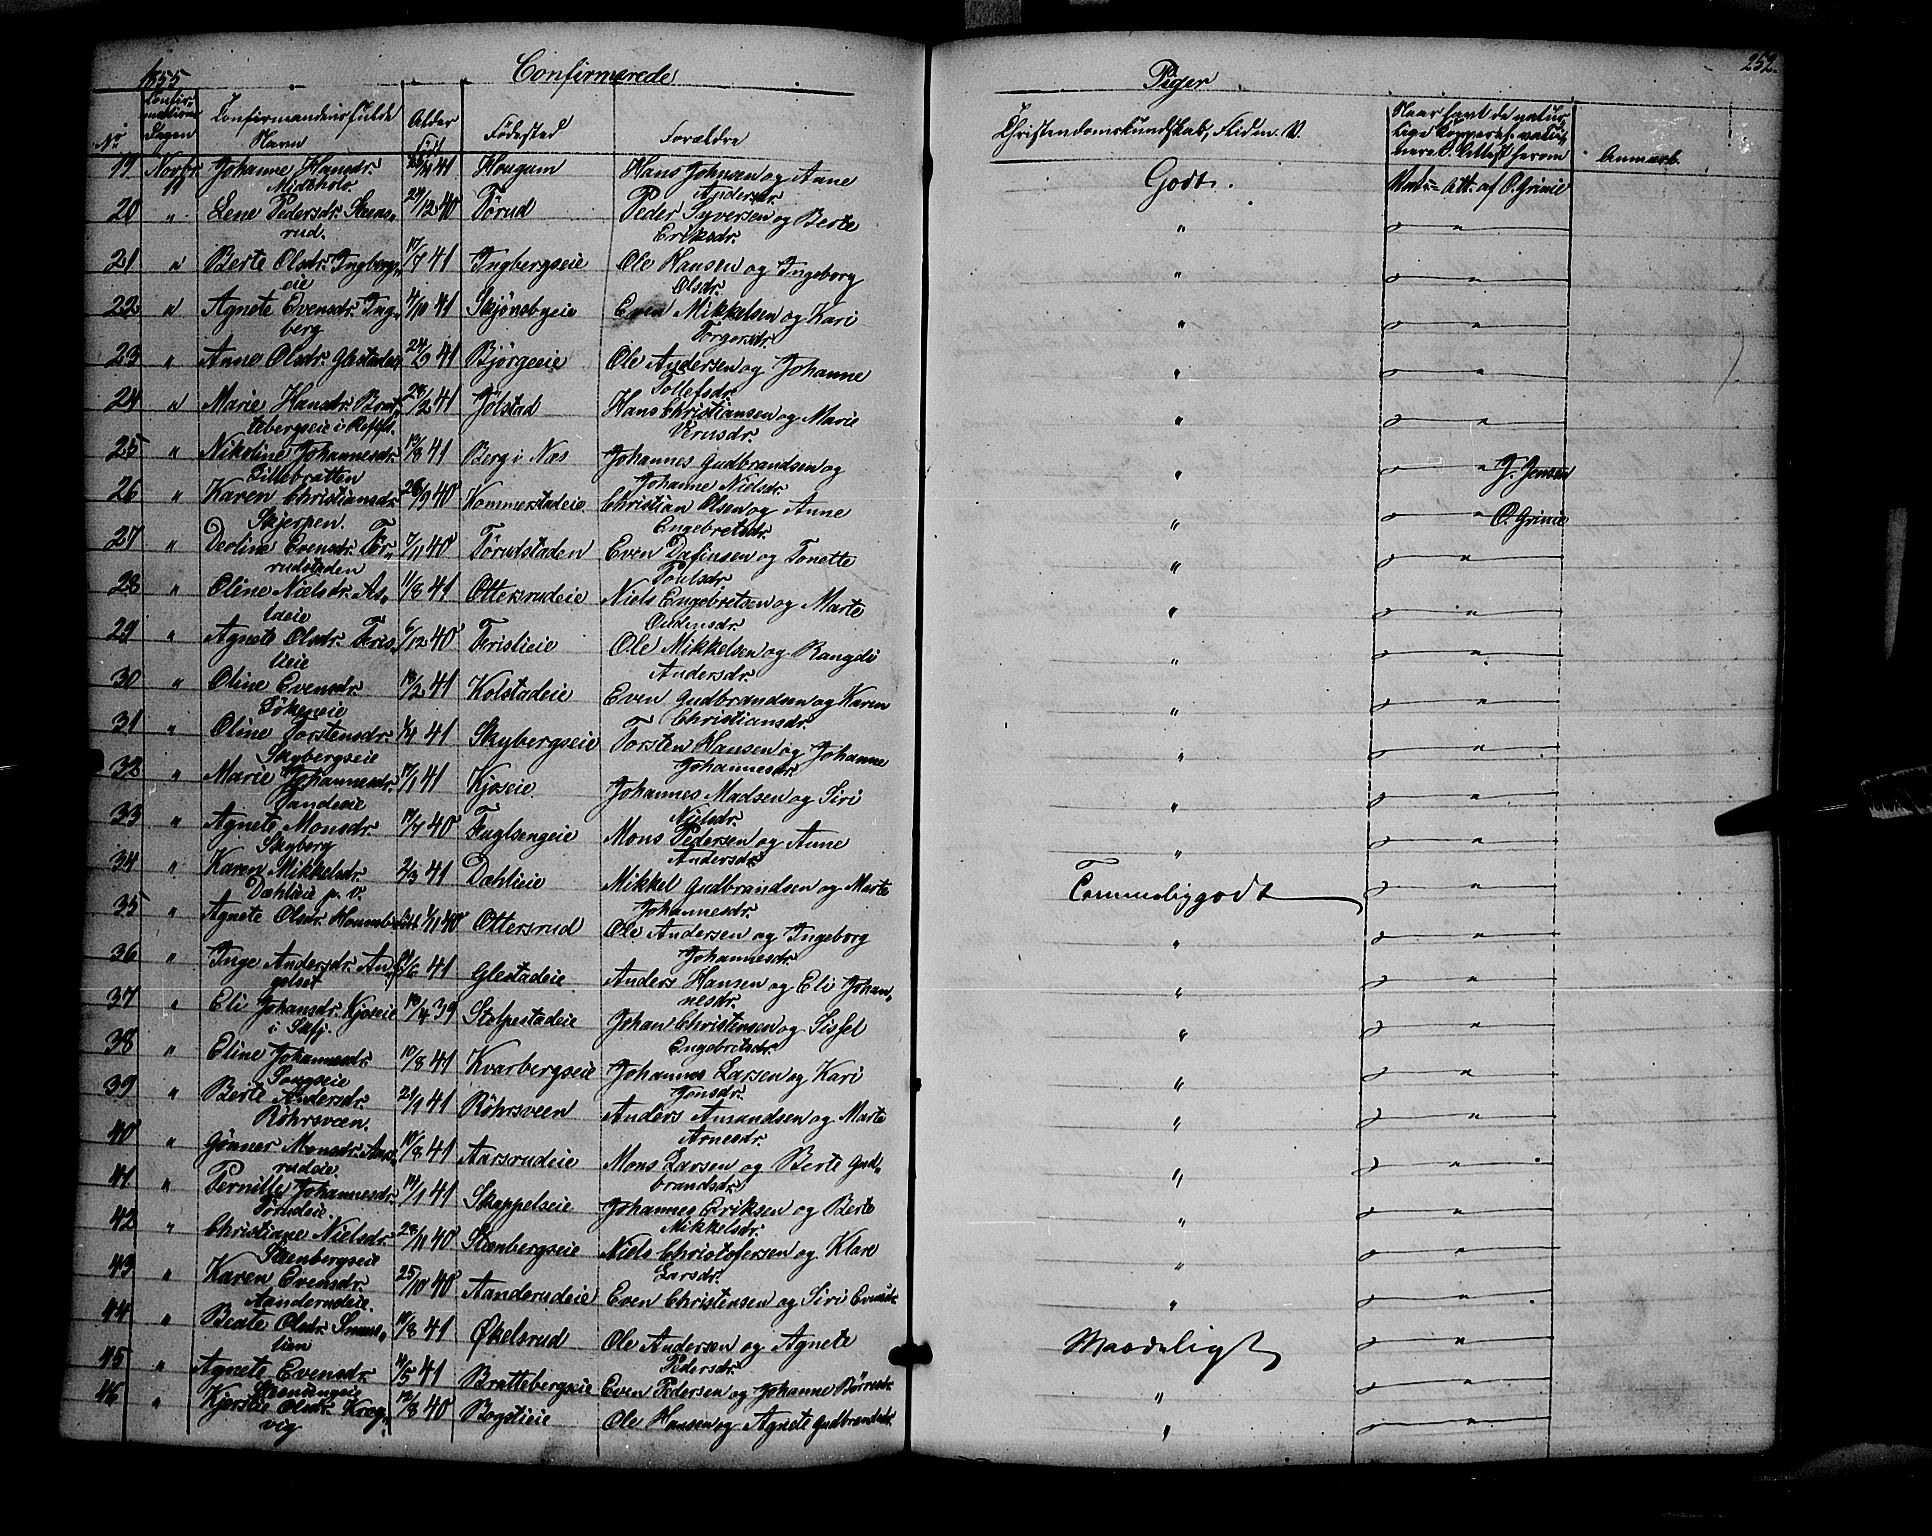 1855 Confirmerede Piger 252.
No Confirmations Dagen Confirmandens fulde Navn Alder Født Fødested Forældre Christendomskundskab, Fliden. V. Naar havt de naturlige Kopper el. vaccineret. Attest herom Anmærk.
19 Novbr 11 Johanne Hansdr. 41 Hougum Hans Johnsen og Anne Andersdr. Godt. Att. af O. Grinie
20 " Lene Pedersdr. Steensrud. 29/12 40 Tørud Peder Syversen og Berte Eriksdr. " "
21 " Berte Olsdr. Ingbergseie 17/7 41 Ingbergseie Ole Hansen og Ingeborg Olsdr. " "
22 " Agnete Evensdr. Ingberg 4/10 41 Skjønsbyeie Even Mikkelsen og Kari Torgersdr. " "
23 " Anne Olsdr. Glestadeie 24/3 41 Bjørgeeie Ole Andersen og Johanne Tollefsdr. " "
24 " Marie Hansdr. Brattebergseie i 28/2 41 Jølstad Hans Christiansen og Marie " "
25 " Nikoline Johannesdr. Lillebratten 13/8 41 Berg i Næs Johannes Gudbrandsen og Johanne Nielsdr. " " J. Jensen
26 " Karen Christiansdr. Skjerpen. 26/9 40 Kommerstadeie Christian Olsen og Anne Engebretsdr. " " O. Grinie
27 " Deoline Evensdr. Tørudstaden 7/11 40 Tørudstaden Even Dafinsen og Tonette Poulsdr. " "
28 " Oline Nielsdr. Asldeie 11/8 41 Ottersrudeie Niels Engebretsen og Marte Oudensdr. " "
29 " Agnete Olsdr. Ferislieie 6/12 40 Ferislieie Ole Mikkelsen og Rangdi Andersdr. " "
30 " Oline Evensdr. Løkeneie 18/2 41 Kolstadeie Even Gudbrandsen og Karen Christiansdr. " "
31 " Oline Torstensdr. Skybergseie 1/4 41 Skybergseie Torsten Hansen og Johanne Johannesdr. " "
32 " Marie Johannesdr. Sandeeie 17/1 41 Kjoseie Johannes Madsen og Siri Nielsdr. " "
33 " Agnete Monsdr. Skyberg 17/7 40 Fuglsengeie Mons Pedersen og Anne Andersdr. " "
34 " Karen Mikkelsdr. Dahlieie p. V. 2/3 41 Dahlieie Mikkel Gudbrandsen og Marte Johannesdr. Temmeliggodt "
35 " Agnete Olsdr. 1/11 40 Ottersrud Ole Andersen og Ingeborg Johannesdr. " "
36 " Inge Andersdr. Angelset 6 41 Glestadeie Anders Hansen og Eli Johannesdr. " "
37 " Eli Johansdr. Kjoseie i Skfj. 10/4 39 Stolpestadeie Johan Christensen og Sissel Engebretsdr. " "
38 " Eline Johannesdr. Sougseie 10/8 41 Kvarbergseie Johannes Larsen og Kari Jonsdr. " "
39 " Berte Andersdr. Røhrsveen. 24/1 41 Røhrsveen Anders Amandsen og Marte Arnesdr. " "
40 " Gønner Monsdr. Aarsrudeie 10/8 41 Aarsrudeie Mons Larsen og Berte Gudbrandsdr. " "
41 " Pernille Johannesdr. Tørudeie. 14/1 41 Skappelseie Johannes Eriksen og Berte Mikkelsdr. " "
42 " Christiane Nielsdr. Steenbergseie 28/11 40 Steenbergseie Niels Christofersen og Klare Larsdr. " "
43 " Karen Evensdr. Aanderudeie. 25/10 40 Aanderudeie Even Christensen og Siri Evensdr. " "
44 " Beate Olsdr. Smuslien 10/8 41 Økelsrud Ole Andersen og Agnete Pedersdr. Maadeligt "
45 " Agnete Evensdr. 4/5 41 Brattebergseie Even Pedersen og Johanne Børresdr. " "
46 " Kjerstie Olsdr. Kregvig 12/8 40 Bogslieie Ole Hansen og Agnete Gudbrandsdr. " "